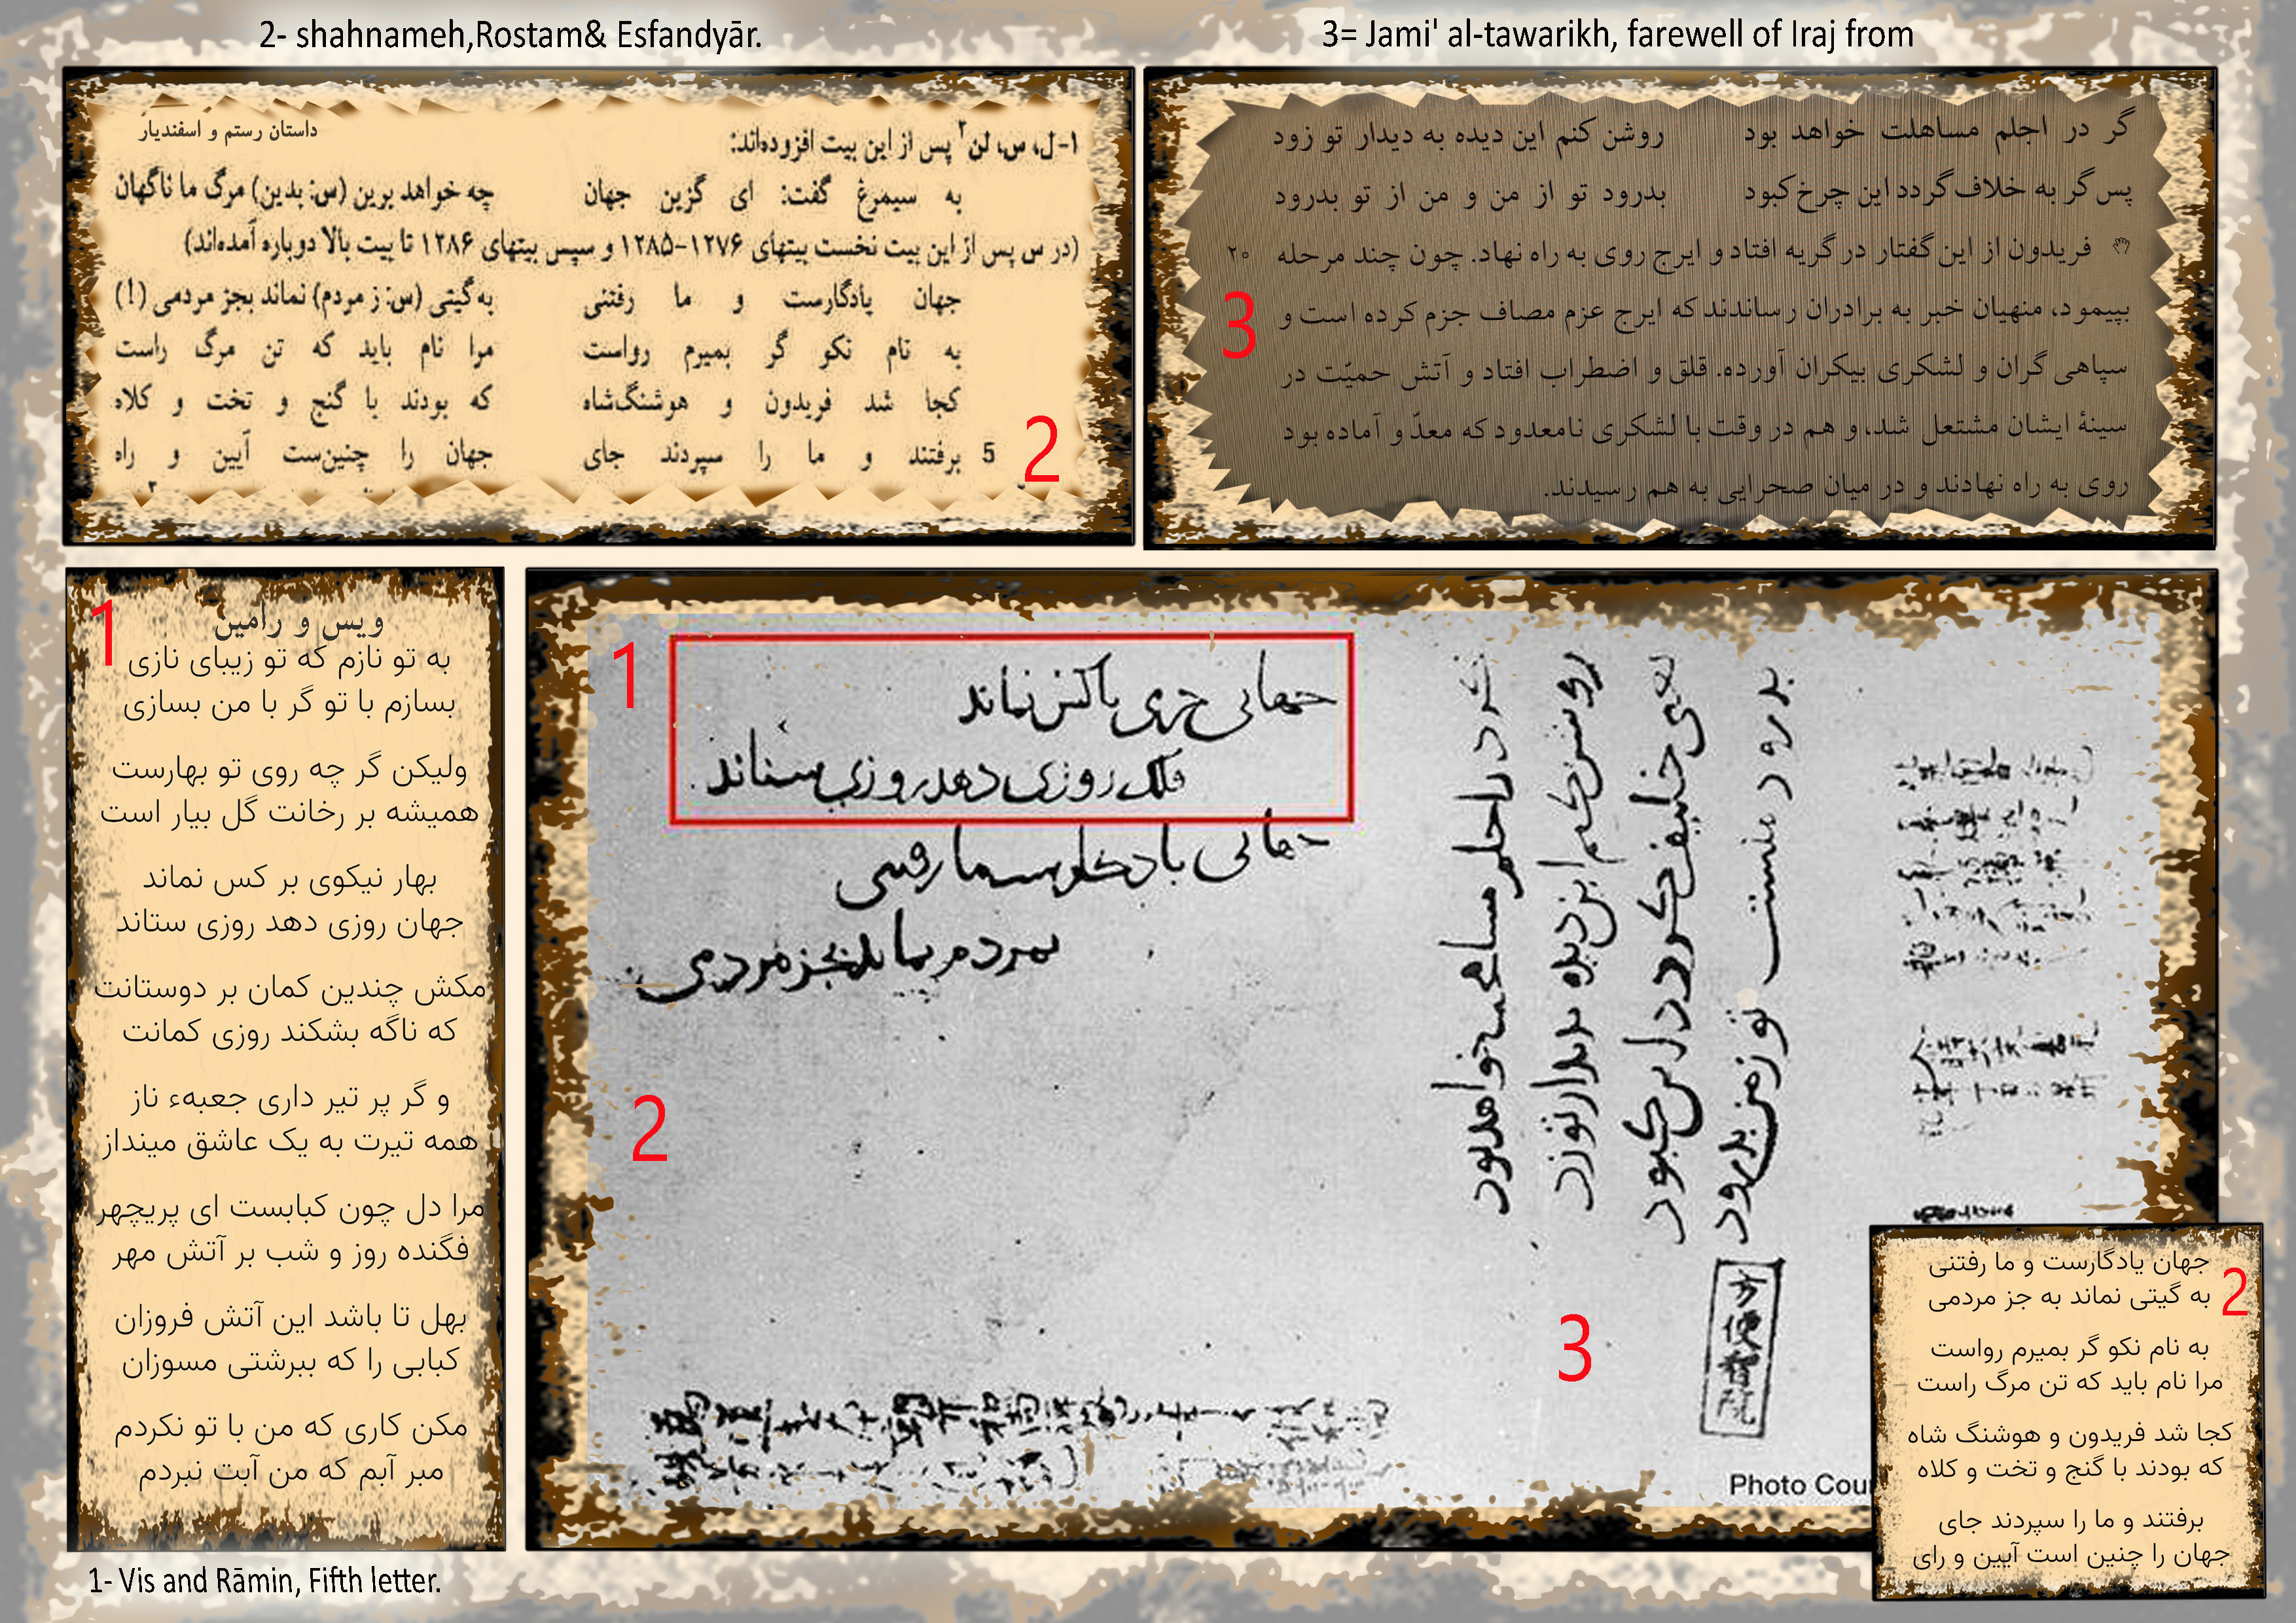 2- shahnameh,Rostam& Esfandyār.
داستان رستم و اسفندیار
۱-ل، س، لن۲ پس از این بیت افزوده‌اند:
به سیمرغ گفت: ای گزین جهان چه خواهد برین (س: بدین) مرگ ما ناگهان
(در س پس از این بیت نخست بیتهای ۱۲۷۶-۱۲۸۵ و سپس بیتهای ۱۲۸۶ تا بیت بالا دوباره آمده‌اند)
جهان یادگارست و ما رفتنی به گیتی (س: ز مردم) نماند بجز مردمی (!)
به نام نکو گر بمیرم رواست مرا نام باید که تن مرگ راست
کجا شد فریدون و هوشنگ‌شاه که بودند با گنج و تخت و کلاه
5 برفتند و ما را سپردند جای جهان را چنین‌ست آیین و راه
2
3= Jami' al-tawarikh, farewell of Iraj from
گر در اجلم مساهلت خواهد بود روشن کنم این دیده به دیدار تو زود
پس گر به خلاف گردد این چرخ کبود بدرود تو از من و من از تو بدرود
فریدون از این گفتار در گریه افتاد و ایرج روی به راه نهاد. چون چند مرحله ۲۰
بپیمود، منهیان خبر به برادران رساندند که ایرج عزم مصاف جزم کرده است و
سپاهی گران و لشکری بیکران آورده. قلق و اضطراب افتاد و آتش حمیّت در
سینهٔ ایشان مشتعل شد، و هم در وقت با لشکری نامعدود که معدّ و آماده بود
روی به راه نهادند و در میان صحرایی به هم رسیدند.
3
1
ویس و رامین
به تو نازم که تو زیبای نازی
بسازم با تو گر با من بسازی
ولیکن گر چه روی تو بهارست
همیشه بر رخانت گل بیار است
بهار نیکوی بر کس نماند
جهان روزی دهد روزی ستاند
مکش چندین کمان بر دوستانت
که ناگه بشکند روزی کمانت
و گر پر تیر داری جعبهء ناز
همه تیرت به یک عاشق مینداز
مرا دل چون کبابست ای پریچهر
فگنده روز و شب بر آتش مهر
بهل تا باشد این آتش فروزان
کبابی را که ببرشتی مسوزان
مکن کاری که من با تو نکردم
مبر آبم که من آبت نبردم
1- Vis and Rāmin, Fifth letter.
1
جهانی خرمی با کس نماند
فلک روزی دهد روزی ستاند
جهانی یادگارست ما رفتنی
بمردم نماند بجز مردمی
2
در اجلم مساعی خواهد بود
روشن کنم این دیده بدیدار تو زود
کردد این کبود
بدرود تو از من بدرود
3
Photo Cou
جهان یادگارست و ما رفتنی
به گیتی نماند به جز مردمی
به نام نکو گر بمیرم رواست
مرا نام باید که تن مرگ راست
کجا شد فریدون و هوشنگ شاه
که بودند با گنج و تخت و کلاه
برفتند و ما را سپردند جای
جهان را چنین است آیین و رای
2